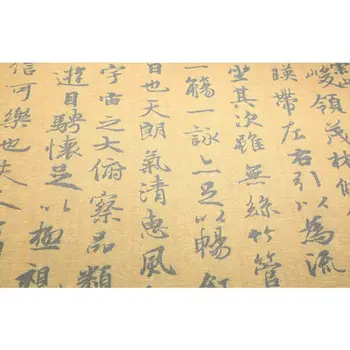 峻領茂林
暎帶左右引以為流
坐其次雖無絲竹管
一觴一詠亦足以暢
日也天朗氣清惠風
宇宙之大俯察品類
遊目騁懷足以極視
信可樂也夫